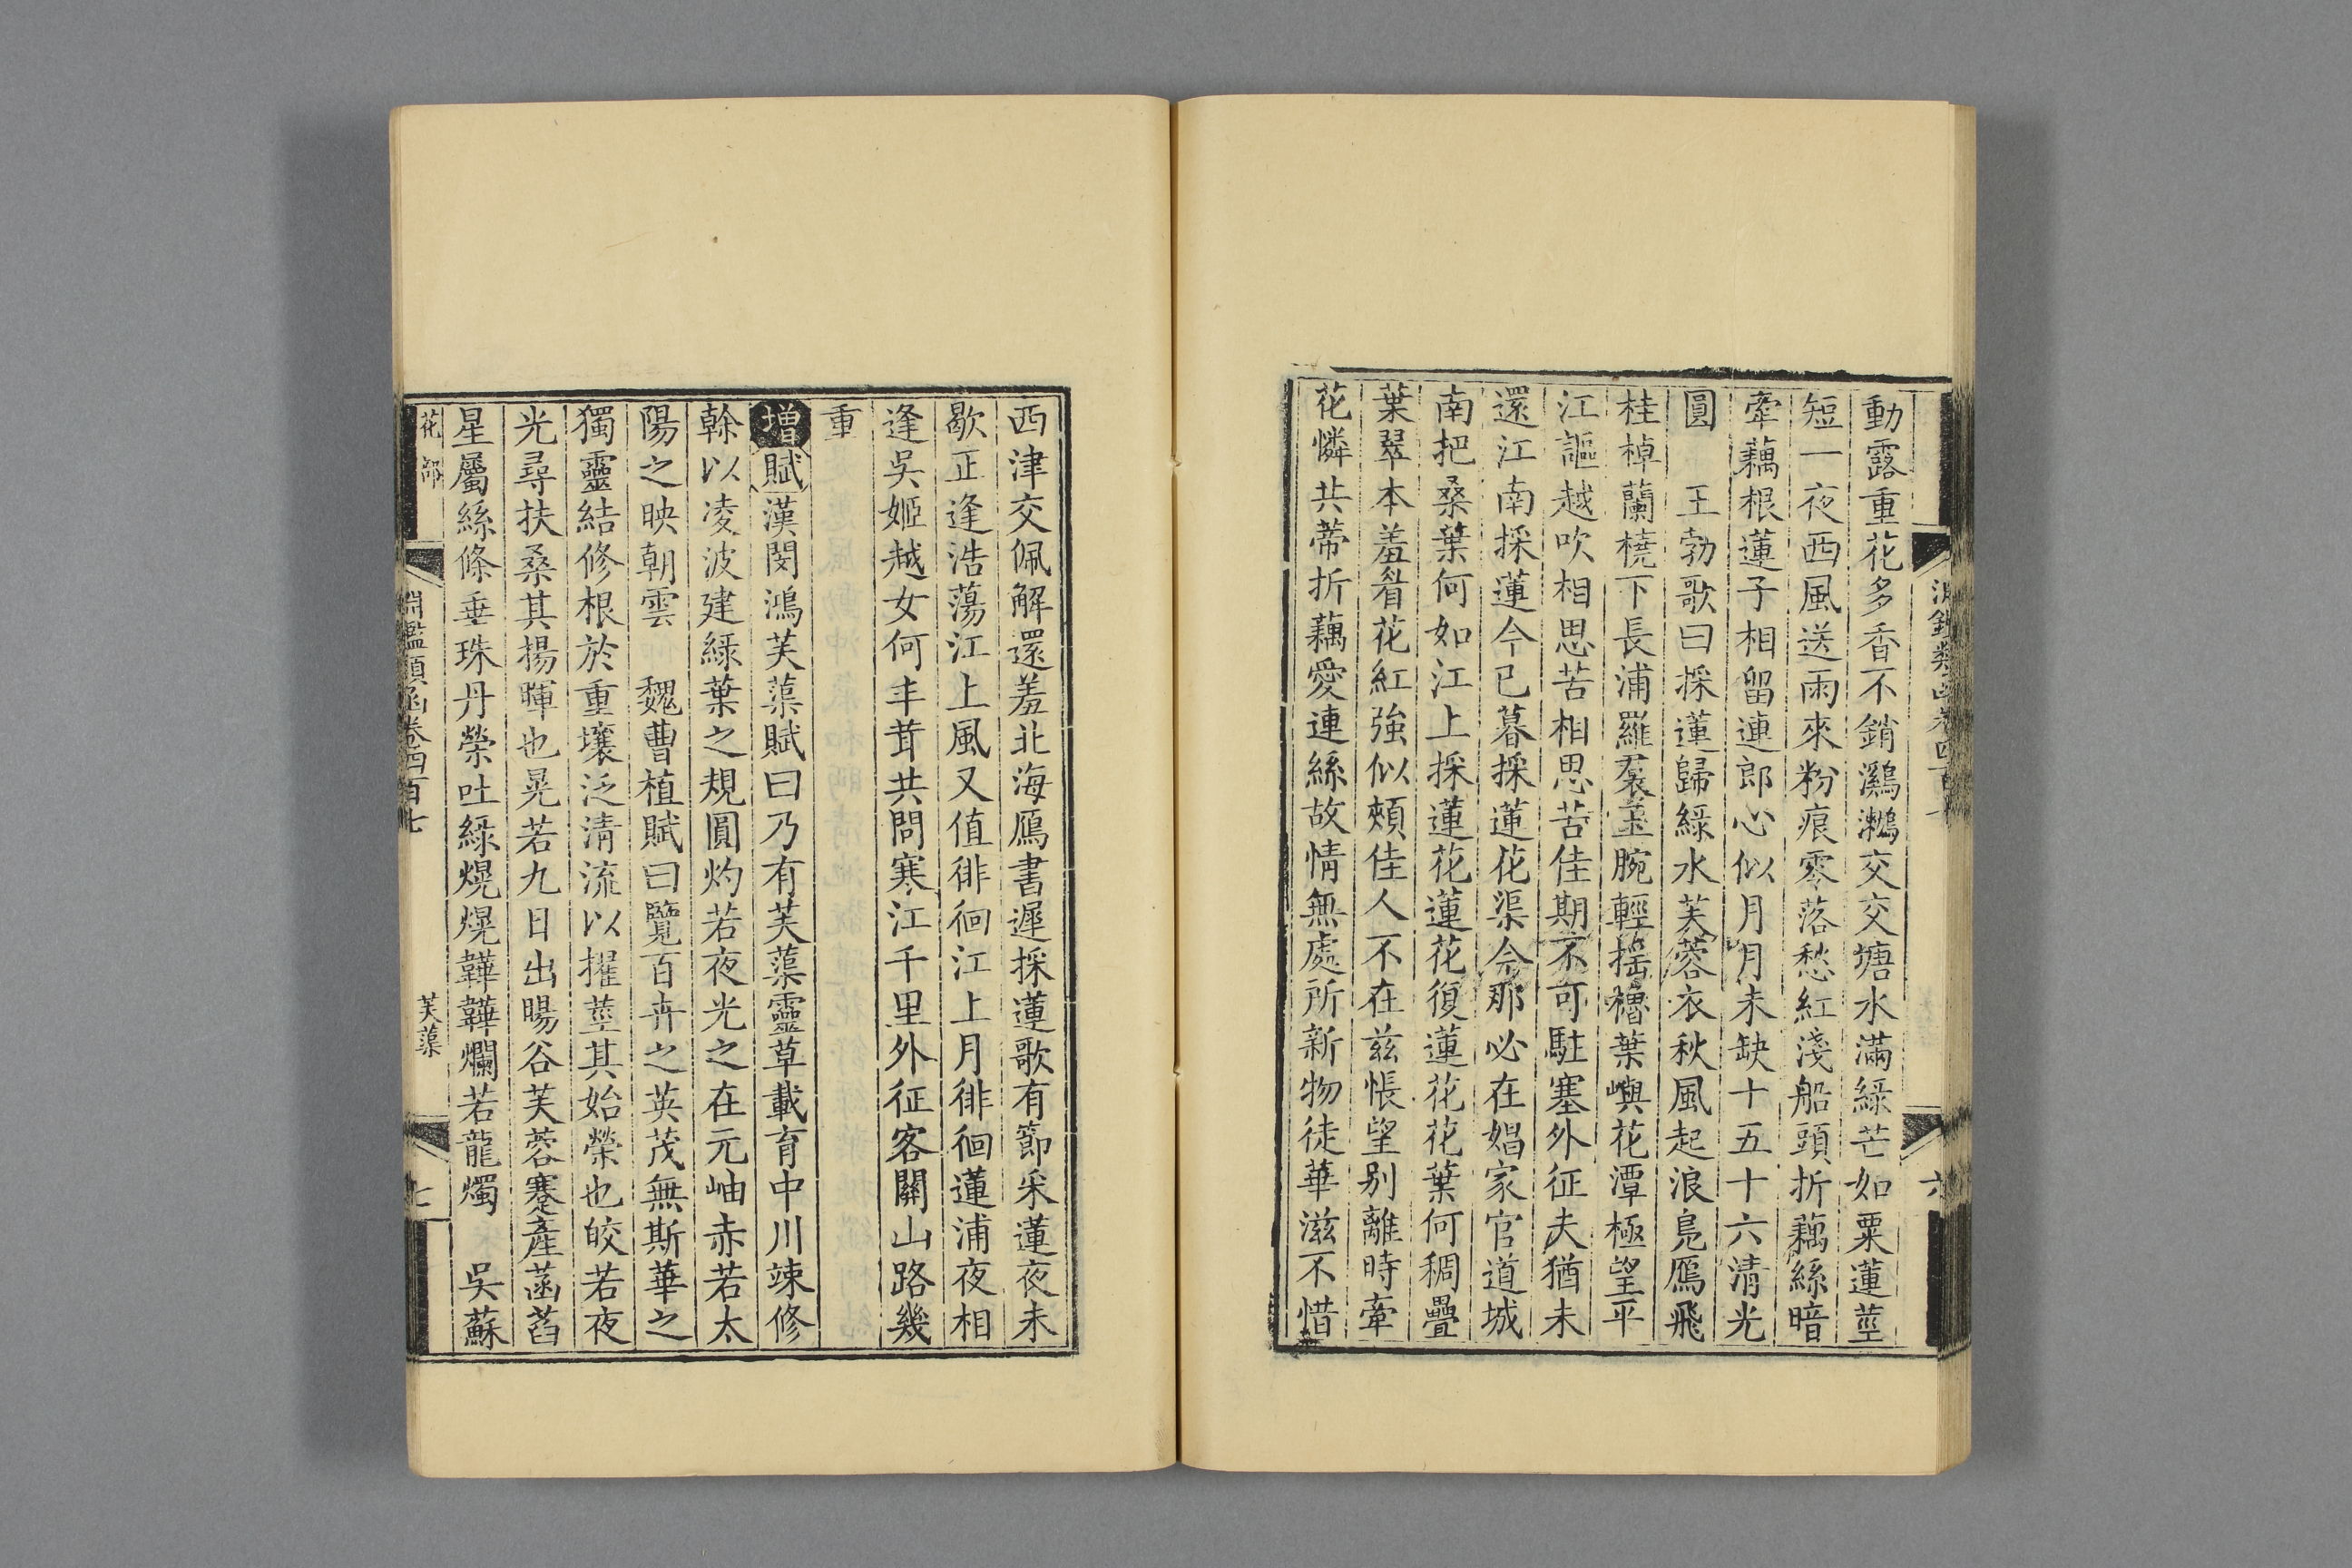 淵鑑類函卷四百七
六
動露重花多香不銷鸂𪆟交交塘水滿綠芒如粟蓮莖
短一夜西風送雨來粉痕零落愁紅淺船頭折藕絲暗
牽藕根蓮子相留連郎心似月月未缺十五十六清光
圓　王勃歌曰採蓮歸綠水芙蓉衣秋風起浪鳧鴈飛
桂棹蘭橈下長浦羅裠玉腕輕搖櫓葉嶼花潭極望平
江謳越吹相思苦相思苦佳期不可駐塞外征夫猶未
還江南採蓮今已暮採蓮花渠今那必在娼家官道城
南把桑葉何如江上採蓮花蓮花復蓮花花葉何稠疊
葉翠本羞眉花紅強似頰佳人不在茲悵望別離時牽
花憐共蒂折藕愛連絲故情無處所新物徒華滋不惜
西津交佩解還羞北海鴈書遲採蓮歌有節采蓮夜未
歇正逢浩蕩江上風又值徘徊江上月徘徊蓮浦夜相
逢吳姬越女何丰茸共問寒江千里外征客關山路幾
重
增賦漢閔鴻芙蕖賦曰乃有芙蕖靈草載育中川竦修
榦以凌波建綠葉之規圓灼若夜光之在元岫赤若太
陽之映朝雲　魏曹植賦曰覽百卉之英茂無斯華之
獨靈結修根於重壤泛清流以擢莖其始榮也皎若夜
光尋扶桑其揚暉也晃若九日出暘谷芙蓉蹇產菡萏
星屬絲條垂珠丹榮吐綠熀熀韡韡爛若龍燭　吳蘇
花部
淵鑑類函卷四百七
芙蕖
七